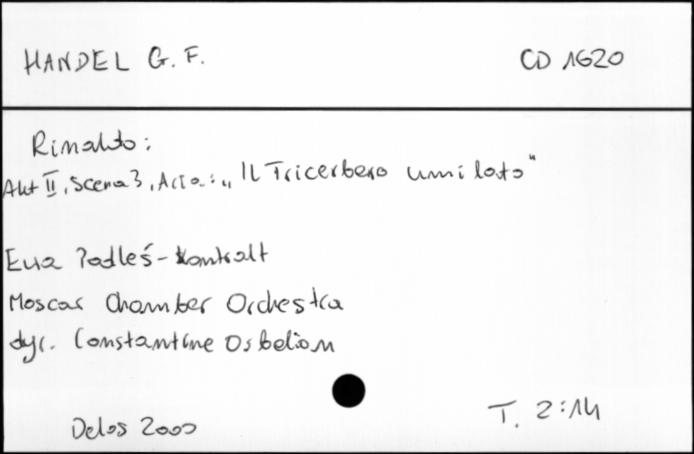 HANDEL G. F. CD 1620
Rinaldo:
Akt II, Scena 3, Aria: „Il Tricerbero umilato"
Ewa Podleś - kontralt
Moscow Chamber Orchestra
dyr. Constantine Orbelian
Delos 2000 T. 2:14